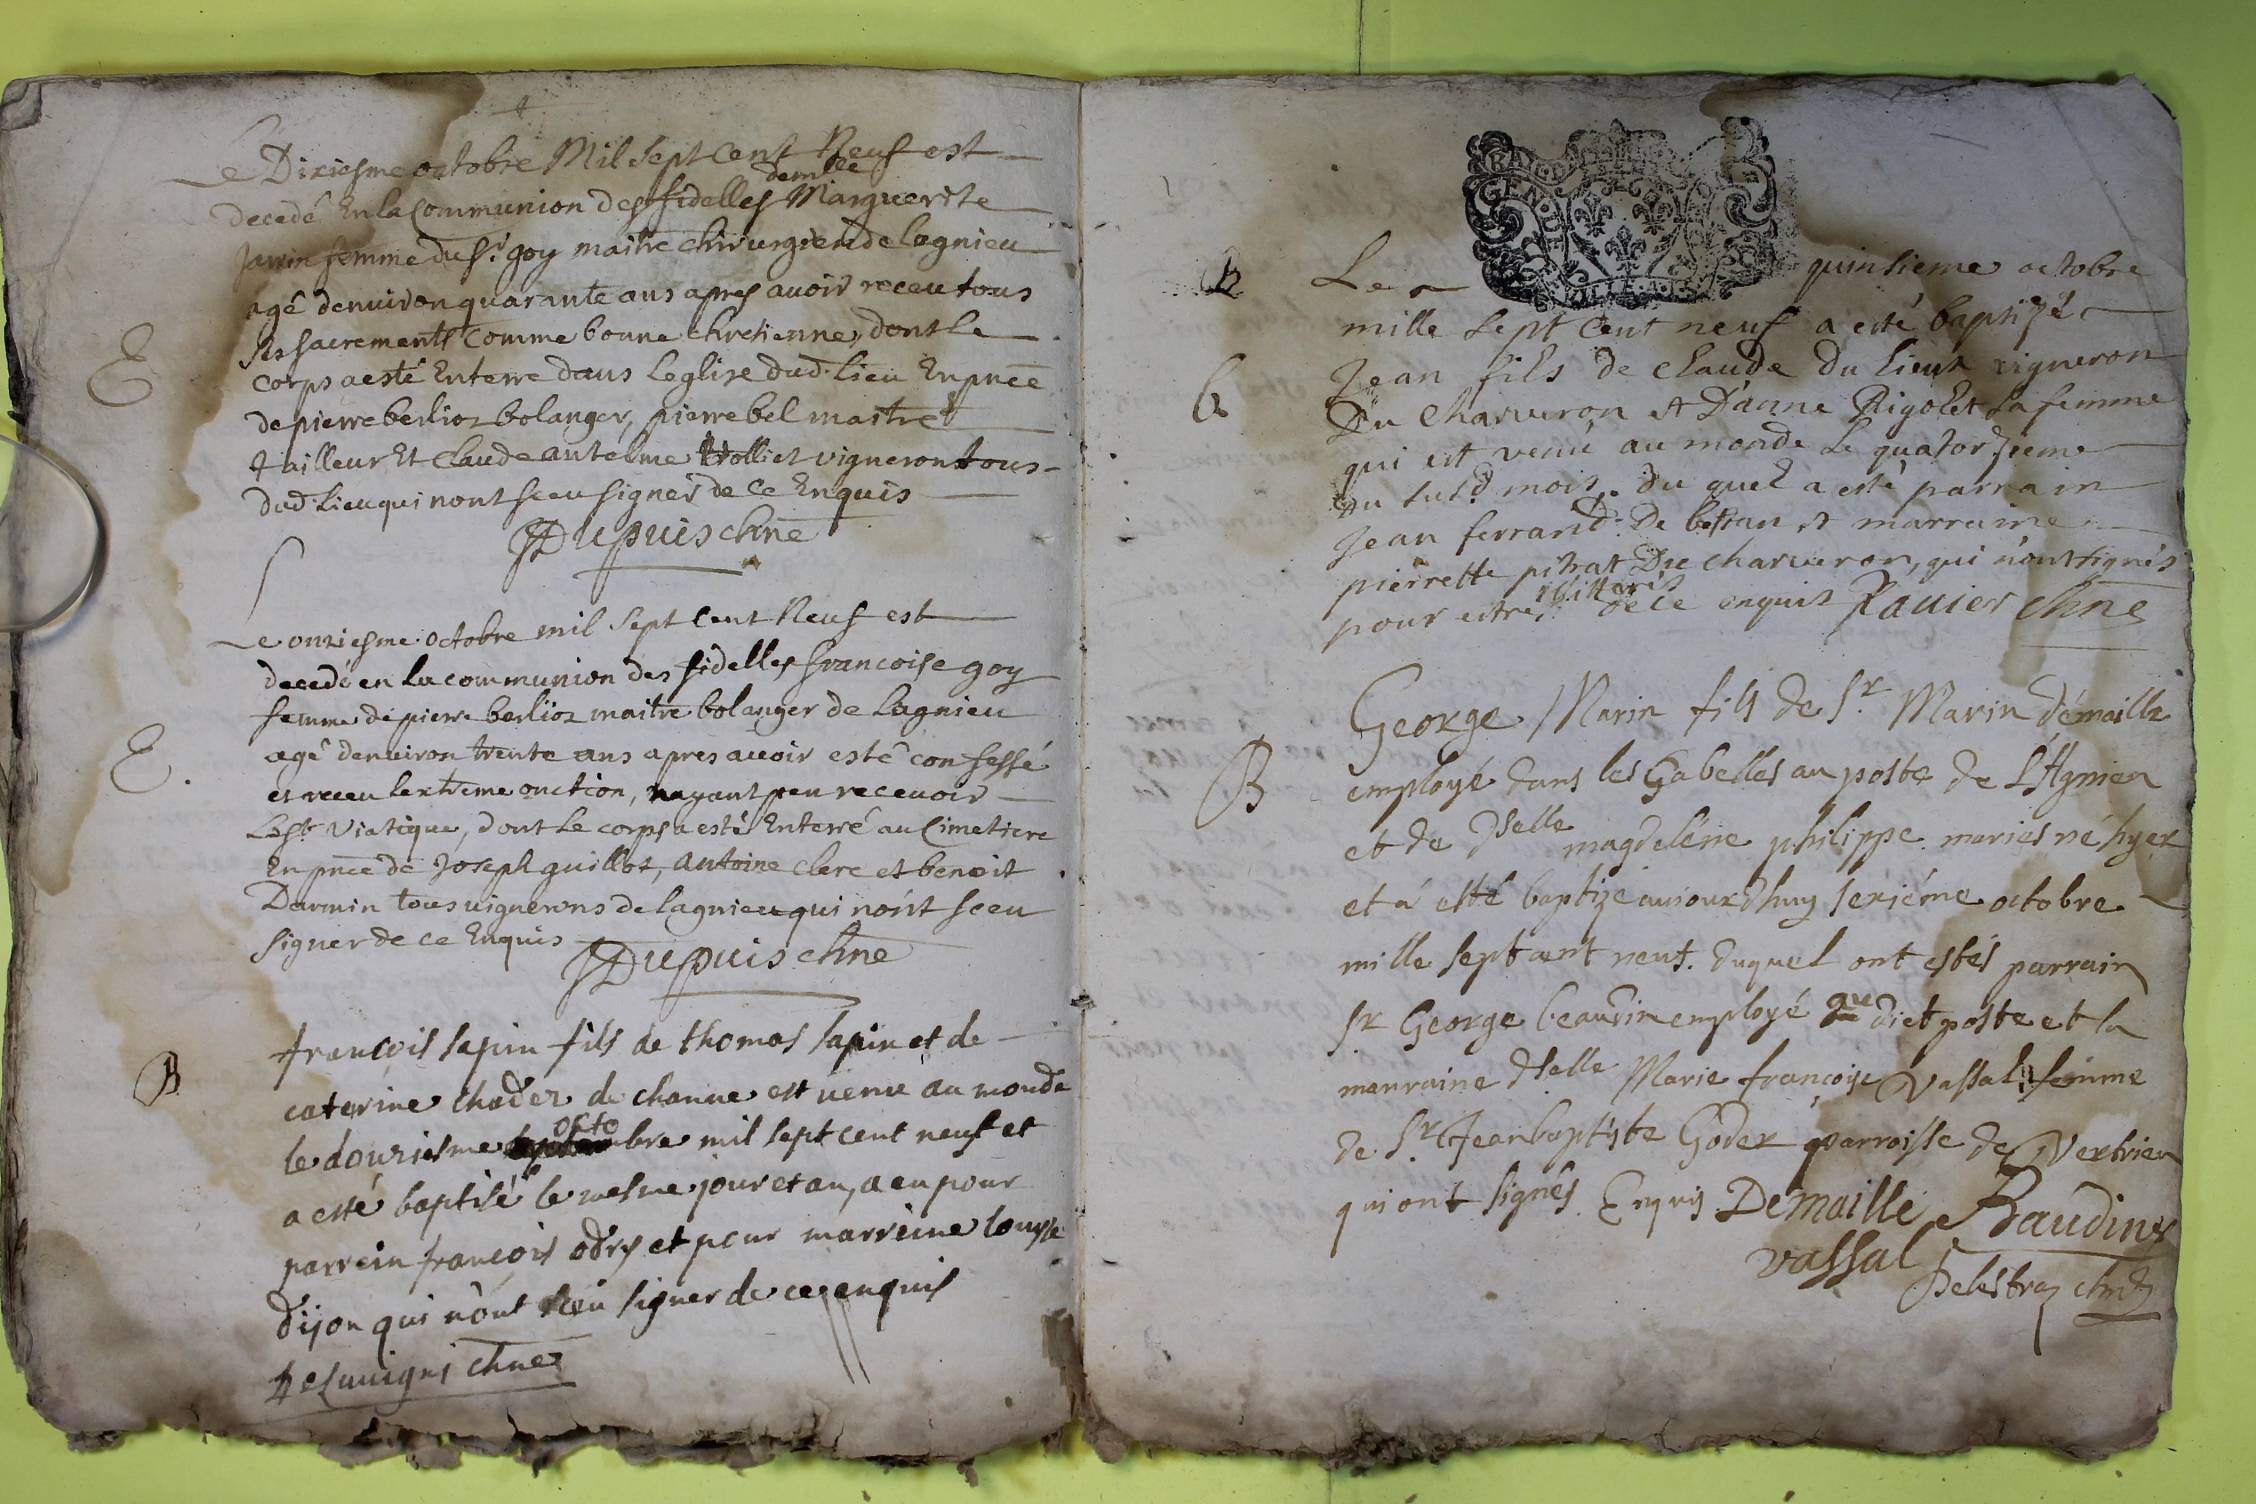 Le Dixiesme octobre Mil sept Cent Neuf est
decedé En la Communion des fidelles demlle Marguerite
Jarrin femme du Sr. goy maitre chirurgien de lagnieu
agé denuiron quarante ans apres auoir receu tous
ses sacrements Comme bonne chretienne, dont le
corps a esté Enterre dans Leglise dud. Lieu En pnce
de pierre berlioz bolanger, pierre bel maitre
tailleur Et Claude antelme vigneron tous
dud. Lieu qui nont sceu signer de Ce Enquis
Dupuis chne
E
Le onziesme octobre mil sept Cent Neuf est
decedé en la communion des fidelles francoise goy
femme de pierre berlioz maitre bolanger de lagnieu
agé denuiron trente ans apres auoir esté confessé
et receu lextreme onction, nayant peu receuoir
Le St. Viatique, dont le corps a esté Enterré au Cimetiere
En pnce de Joseph guillot, antoine clerc et benoit
Darmin tous uignerons de lagnieu qui nont sceu
signer de ce Enquis Dupuis chne
E.
françois sapin fils de thomas sapin et de
caterine chader de chanue est uenu au monde
le douziesme octobre mil sept cent neuf et
a esté baptisé le mesme jour et an, a eu pour
parrein françois odry et pour marreine louyse
dijon qui n'ont sceu signer de ce enquis
chne
B
GEN
B
Le quinsieme octobre
mille sept Cent neuf a esté baptizé
Jean fils de claude du Lieux vigneron
Du Charveron et D'anne Rigolet sa femme
qui est venu au monde le quatorzieme
du susd. mois. du quel a esté parrain
Jean ferrand. De et marraine
pierrette pitrat Du charveron, qui n'ont signés
pour estre illitterés de ce enquis Rauier chne
b
George Marin fils de Sr Marin démaille
employé dans les Gabelles au poste de L'Agnieu
et de Dselle magdeleine philippe mariés né hyer
et a esté baptizé auiourdhuy sexiéme octobre
mille sept cent neuf. duquel ont estés parrain
Sr George beaudin employé au dict poste et la
marraine Dselle Marie françoise Vassal femme
de Sr. Jean baptiste Goder parroisse de Vertrieu
qui ont signés Enquis Demaille Baudin
vassal Delestraz chne
B